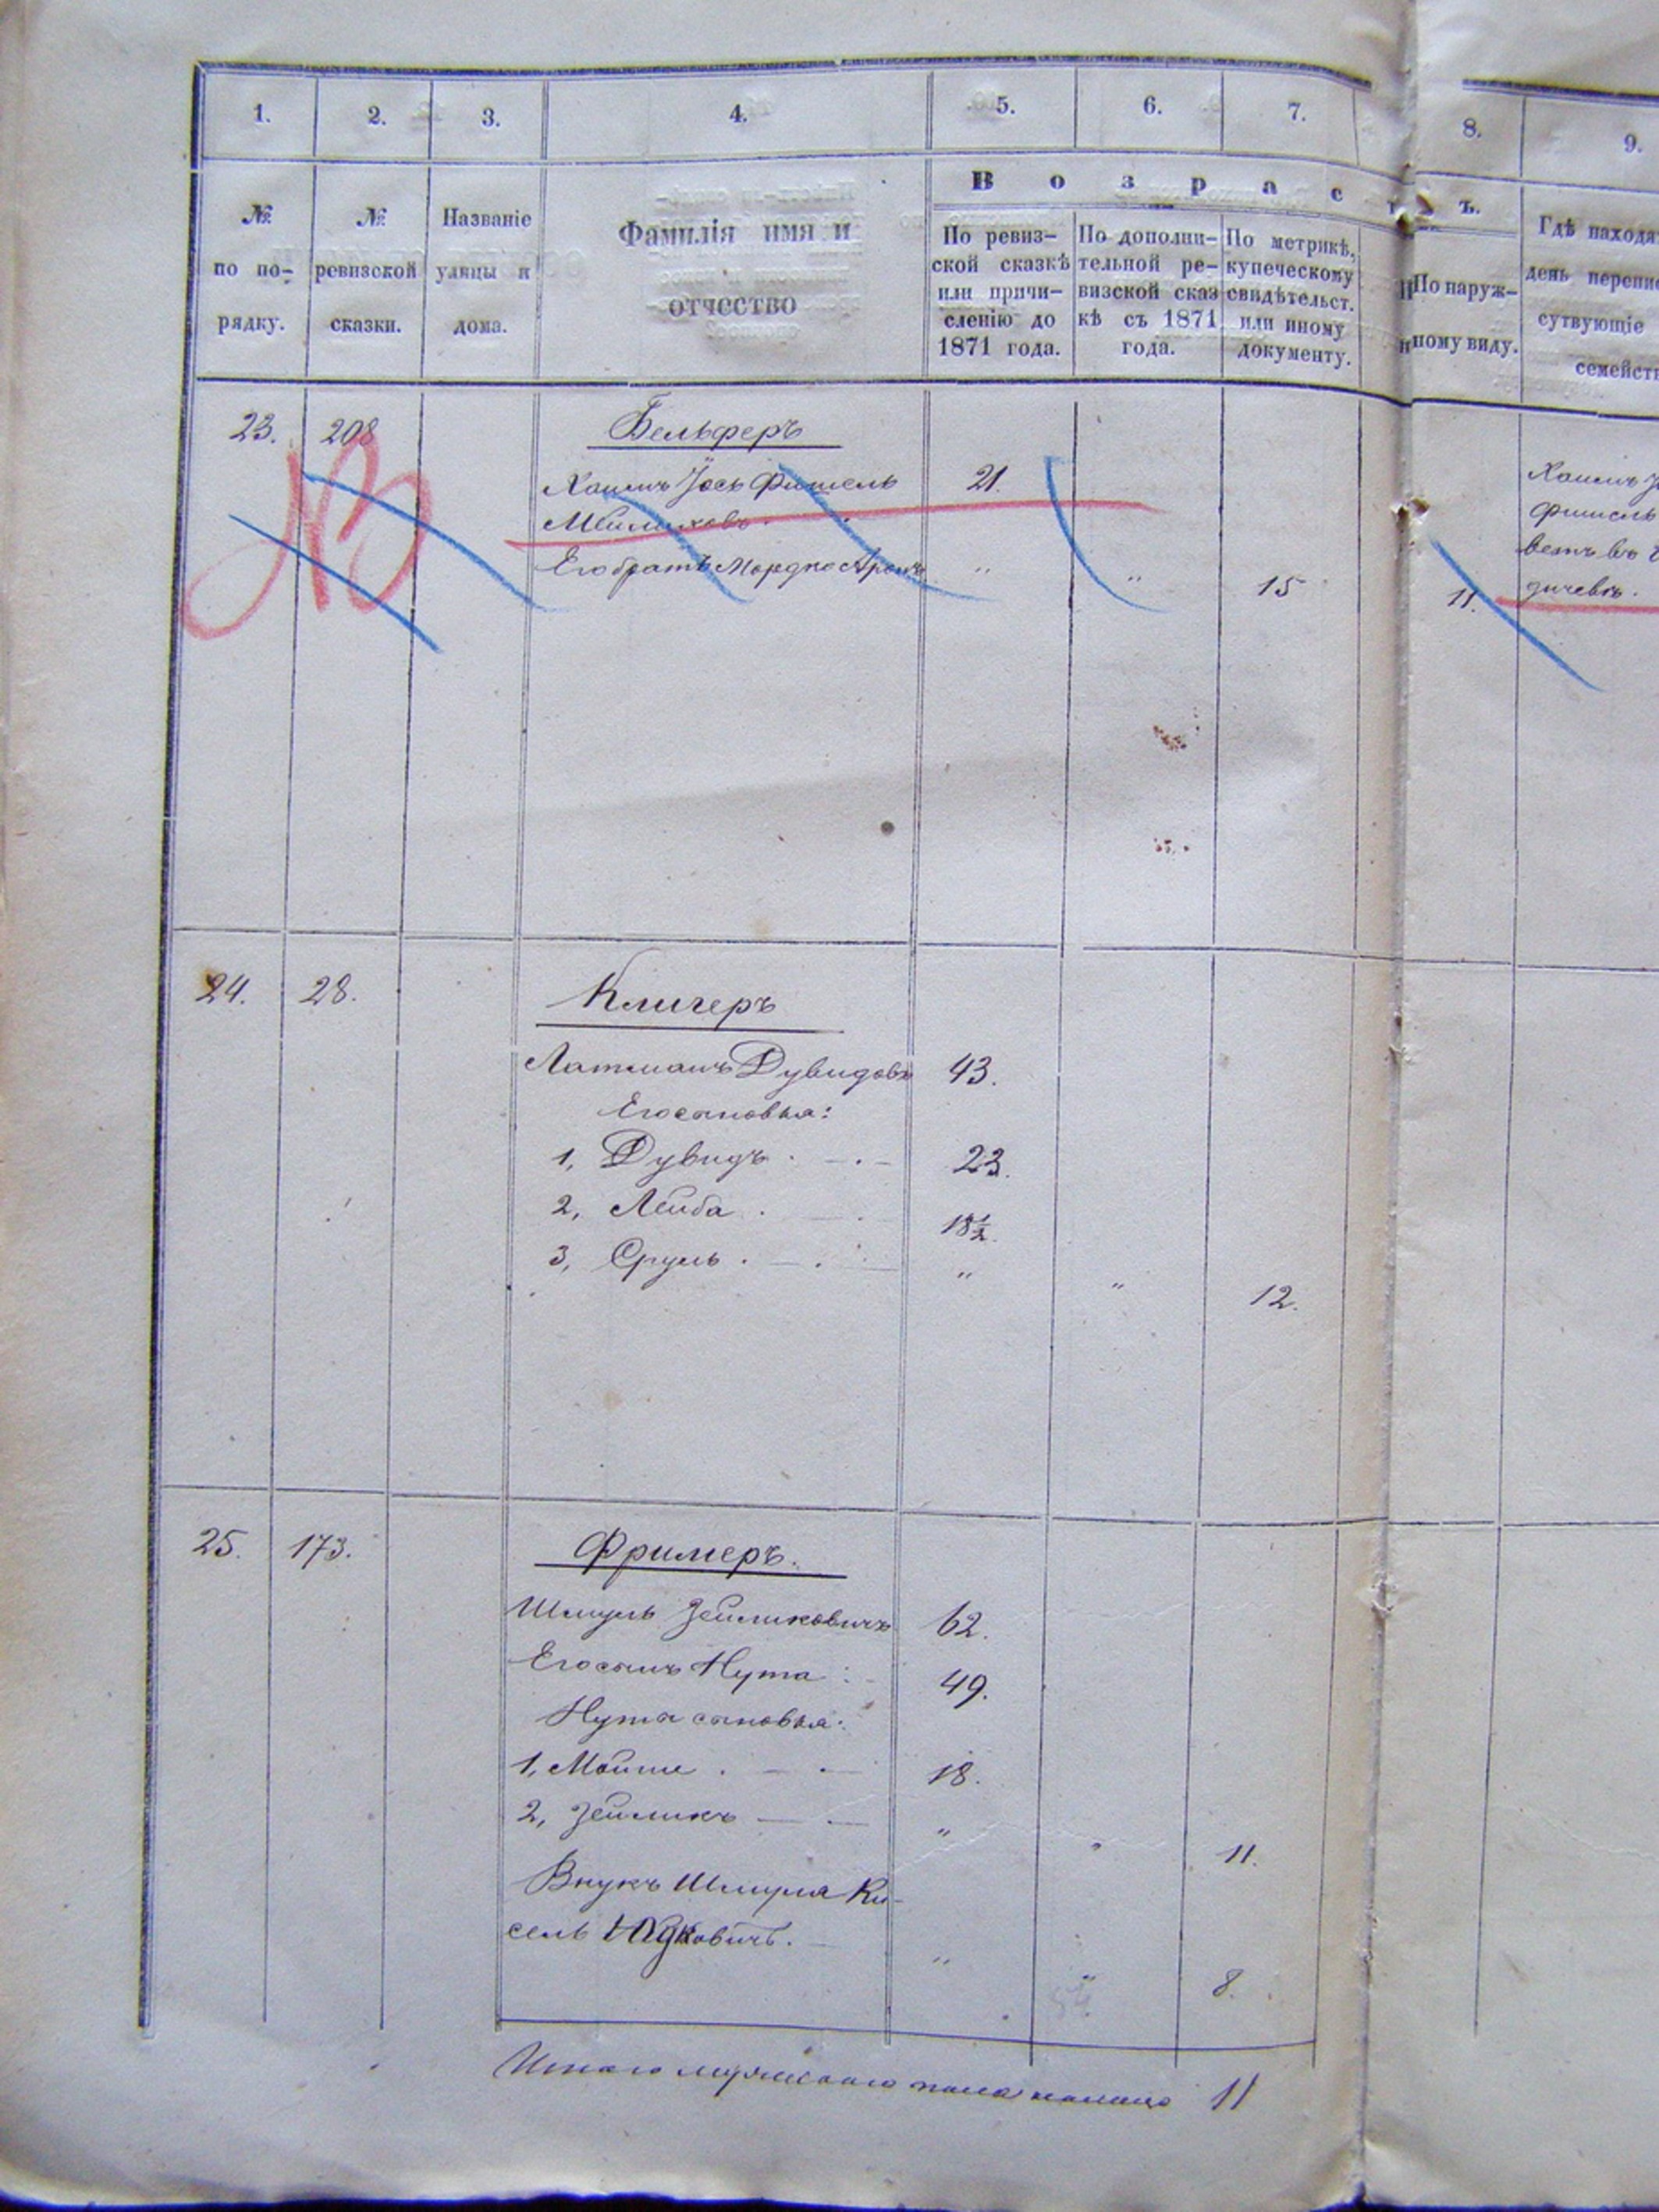 1. 2. 3. 4. 5. 6. 7. 8. 9.
В о з р а с т ъ.
№ по по-рядку.
№ ревизской сказки.
Названіе улицы и дома.
Фамилія имя и отчество
По ревиз-ской сказкѣ или причи-сленію до 1871 года.
По дополни-тельной ре-визской сказкѣ съ 1871 года.
По метрикѣ, купеческому свидѣтельст. или иному документу.
По наруж-ному виду.
Гдѣ находя
день перепис
сутвующіе
семейст
23. 208 Бельферъ
Хаимъ Іось Фишель 21.
Его братъ Мордко Аронъ " " 15 11.
Хаимъ
Фишель
24. 28. Кличеръ
Латманъ Дувидовъ 43.
Его сыновья:
1, Дувидъ . — . — 23.
2, Лейба . — . 18½.
3, Сруль . — . — " " 12.
25. 173. Фримеръ.
Шмуль Зейликовичъ 62.
Его сынъ Нута : - 49.
Нута сыновья:
1, Мойше . — . — 18.
2, Зейликъ — — " " 11.
Внукъ Шмуля Ки-
сель Юдковичъ. — " " 8.
Итого мужескаго пола 11